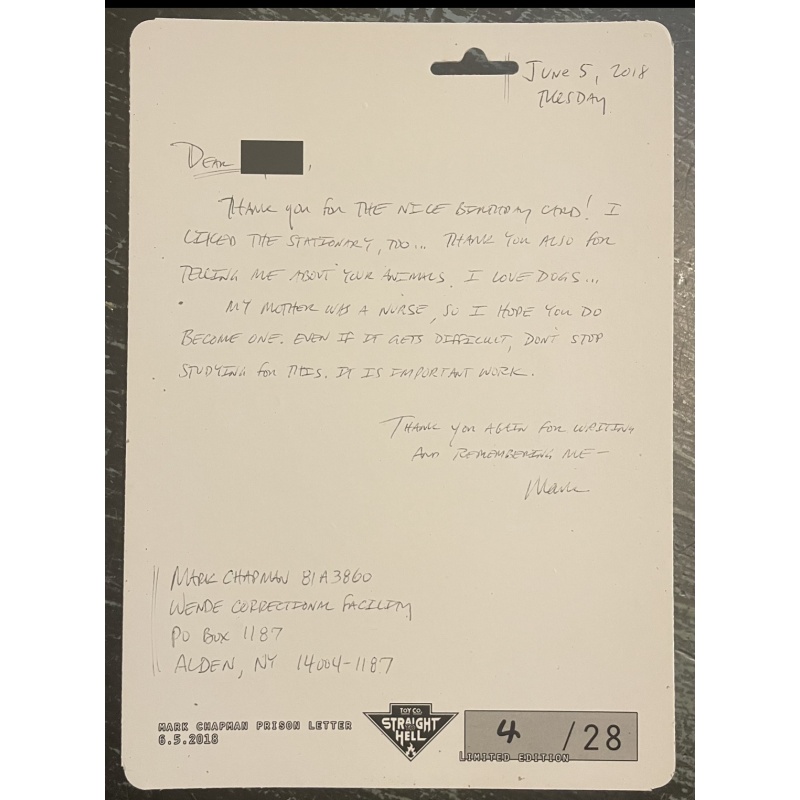 JUNE 5, 2018
TUESDAY
DEAR ,
THANK YOU FOR THE NICE BIRTHDAY CARD! I
LIKED THE STATIONARY, TOO... THANK YOU ALSO FOR
TELLING ME ABOUT YOUR ANIMALS. I LOVE DOGS...
MY MOTHER WAS A NURSE, SO I HOPE YOU DO
BECOME ONE. EVEN IF IT GETS DIFFICULT, DON'T STOP
STUDYING FOR THIS. IT IS IMPORTANT WORK.
THANK YOU AGAIN FOR WRITING
AND REMEMBERING ME—
Mark
MARK CHAPMAN 81A3860
WENDE CORRECTIONAL FACILITY
PO BOX 1187
ALDEN, NY 14004-1187
MARK CHAPMAN PRISON LETTER
6.5.2018
TOY CO.
STRAIGHT
HELL
4 /28
LIMITED EDITION